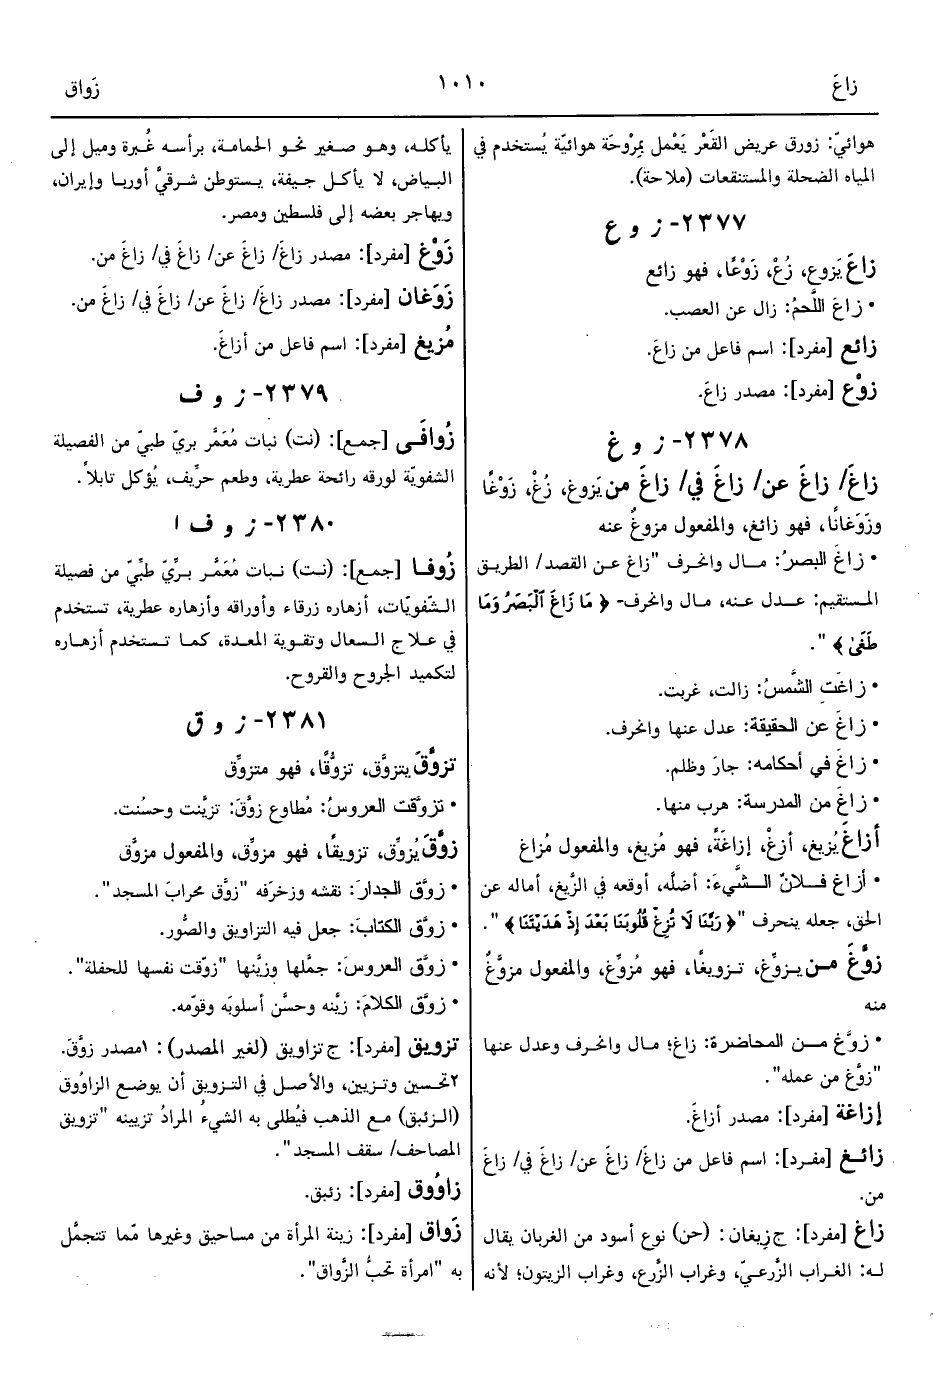 زاغَ
١٠١٠
زَواق
هوائيّ: زورق عريض القَعْر يَعْمل بمِرْوحَة هوائيّة يُستخدم في
المياه الضحلة والمستنقعات (ملاحة).
٢٣٧٧- ز و ع
زاعَ يَزوع، زُعْ، زَوْعًا، فهو زائع
• زاعَ اللَّحمُ: زال عن العصب.
زائع [مفرد]: اسم فاعل من زاعَ.
زوْع [مفرد]: مصدر زاعَ.
٢٣٧٨- ز و غ
زاغَ/ زاغَ عن/ زاغَ في/ زاغَ من يَزوغ، زُغْ، زَوْغًا
وزَوَغانًا، فهو زائغ، والمفعول مزوغٌ عنه
• زاغَ البصرُ: مـال وانحرف "زاغ عـن القصد/ الطريق
المستقيم: عـدل عنه، مال وانحرف- ﴿ مَا زَاغَ الْبَصَرُ وَمَا
طَغَىٰ ﴾ ".
• زاغَت الشَّمسُ: زالت، غربت.
• زاغَ عن الحقيقة: عدل عنها وانحرف.
• زاغَ في أحكامه: جارَ وظلم.
• زاغَ من المدرسة: هرب منها.
أزاغَ يُزيغ، أزِغْ، إزاغَةً، فهو مُزيغ، والمفعول مُزاغ
• أزاغ فـلانٌ الـشَّيءَ: أضلَّه، أوقعه في الزَّيغ، أماله عن
الحق، جعله ينحرف "﴿ رَبَّنَا لَا تُزِغْ قُلُوبَنَا بَعْدَ إِذْ هَدَيْتَنَا ﴾ ".
زوَّغَ مـن يـزوِّغ، تـزويغًا، فهو مُزوِّغ، والمفعول مزوَّغٌ
منه
• زوَّغ مـن المحاضرة: زاغ؛ مـال وانحرف وعدل عنها
"زوَّغ من عمله".
إزاغة [مفرد]: مصدر أزاغَ.
زائـغ [مفـرد]: اسم فاعل من زاغَ/ زاغَ عن/ زاغَ في/ زاغَ
من.
زاغ [مفرد]: ج زِيغان: (حن) نوع أسود من الغربان يقال
لـه: الغـراب الزَّرعـيّ، وغراب الزَّرع، وغراب الزيتون؛ لأنه
يأكلـه، وهـو صـغير نحـو الحمامـة، بـرأسـه غُـبرة وميل إلى
البـياض، لا يـأكـل جـيفة، يـستوطن شـرقيّ أوربـا وإيران،
ويهاجر بعضه إلى فلسطين ومصر.
زَوْغ [مفرد]: مصدر زاغَ/ زاغَ عن/ زاغَ في/ زاغَ من.
زَوَغان [مفرد]: مصدر زاغَ/ زاغَ عن/ زاغَ في/ زاغَ من.
مُزيغ [مفرد]: اسم فاعل من أزاغَ.
٢٣٧٩- ز و ف
زُوافَى [جمع]: (نت) نبات مُعَمَّر بريّ طبيّ من الفصيلة
الشفويّة لورقه رائحة عطرية، وطعم حرِّيف، يُؤكل تابلاً.
٢٣٨٠- ز و ف ا
زُوفـا [جمع]: (نـت) نـبات مُعَمَّـر بـريّ طبِّيّ مـن فصيلة
الـشَّفويَّات، أزهاره زرقاء وأوراقه وأزهاره عطرية، تستخدم
في عـلاج الـسعال وتقـوية المعـدة، كمـا تـستخدم أزهـاره
لتكميد الجروح والقروح.
٢٣٨١- ز و ق
تزوَّقَ يتزوَّق، تزوُّقًا، فهو متزوِّق
• تزوَّقت العروسُ: مُطاوع زوَّقَ: تزيَّنت وحسُنت.
زوَّقَ يُزوِّق، تزويقًا، فهو مزوِّق، والمفعول مزوَّق
• زوَّق الجدارَ: نقشه وزخرَفه "زوَّق محرابَ المسجد".
• زوَّق الكتابَ: جعل فيه التزاويق والصُّور.
• زوَّق العروسَ: جمَّلها وزيَّنها "زوَّقت نفسها للحفلة".
• زوَّق الكلامَ: زيَّنه وحسَّن أسلوبَه وقوَّمه.
تزويق [مفرد]: ج تزاويق (لغير المصدر): ١مصدر زوَّقَ.
٢تحسين وتـزيين، والأصل في التـزويق أن يوضـع الزاوُوق
(الـزئبق) مـع الذهب فيُطلى به الشيءُ المرادُ تزيينه "تزويق
المصاحف/ سقف المسجد".
زاوُوق [مفرد]: زئبق.
زَواق [مفرد]: زينة المرأة من مساحيق وغيرها ممّا تتجمَّل
به "امرأة تحبُّ الزَّواق".